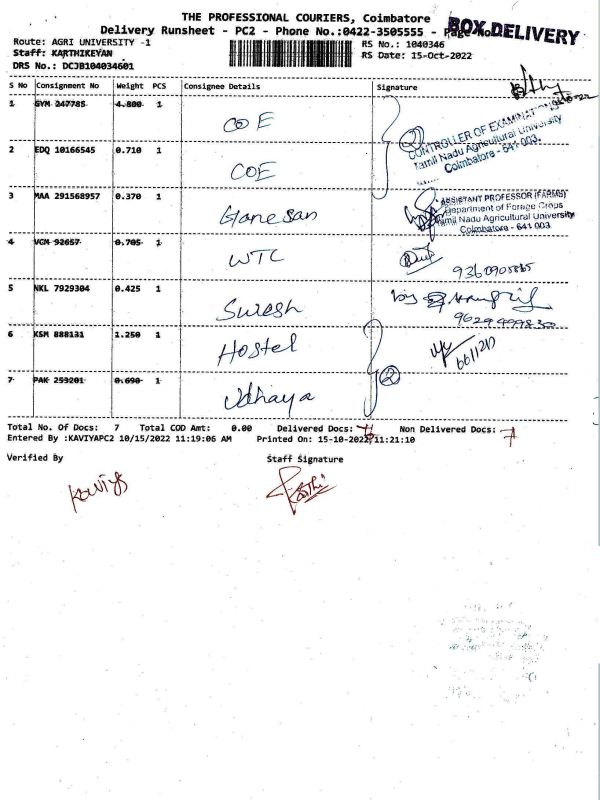 THE PROFESSIONAL COURIERS, Coimbatore
Delivery Runsheet - PC2 - Phone No.:0422-3505555 - Page No
BOX DELIVERY
Route: AGRI UNIVERSITY -1
RS No.: 1040346
Staff: KARTHIKEYAN
RS Date: 15-Oct-2022
DRS No.: DCJB104034601
S No Consignment No Weight PCS Consignee Details Signature
1 GYM 247785 4.800 1 COE
CONTROLLER OF EXAMINATIONS
Tamil Nadu Agricultural University
Coimbatore - 641 003.
2 EDQ 10166545 0.710 1 COE
2
3 MAA 291568957 0.370 1 Ganesan
ASSISTANT PROFESSOR (FARMS)
Department of Forage Crops
Tamil Nadu Agricultural University
Coimbatore - 641 003
4 VGM 92657 0.705 1 WTC
5 NKL 7929304 0.425 1 Suresh
6 KSM 888131 1.250 1 Hostel
7 PAK 259201 0.690 1 Udhaya
2
Total No. Of Docs: 7 Total COD Amt: 0.00 Delivered Docs: Non Delivered Docs:
Entered By :KAVIYAPC2 10/15/2022 11:19:06 AM Printed On: 15-10-2022 11:21:10
Verified By Staff Signature